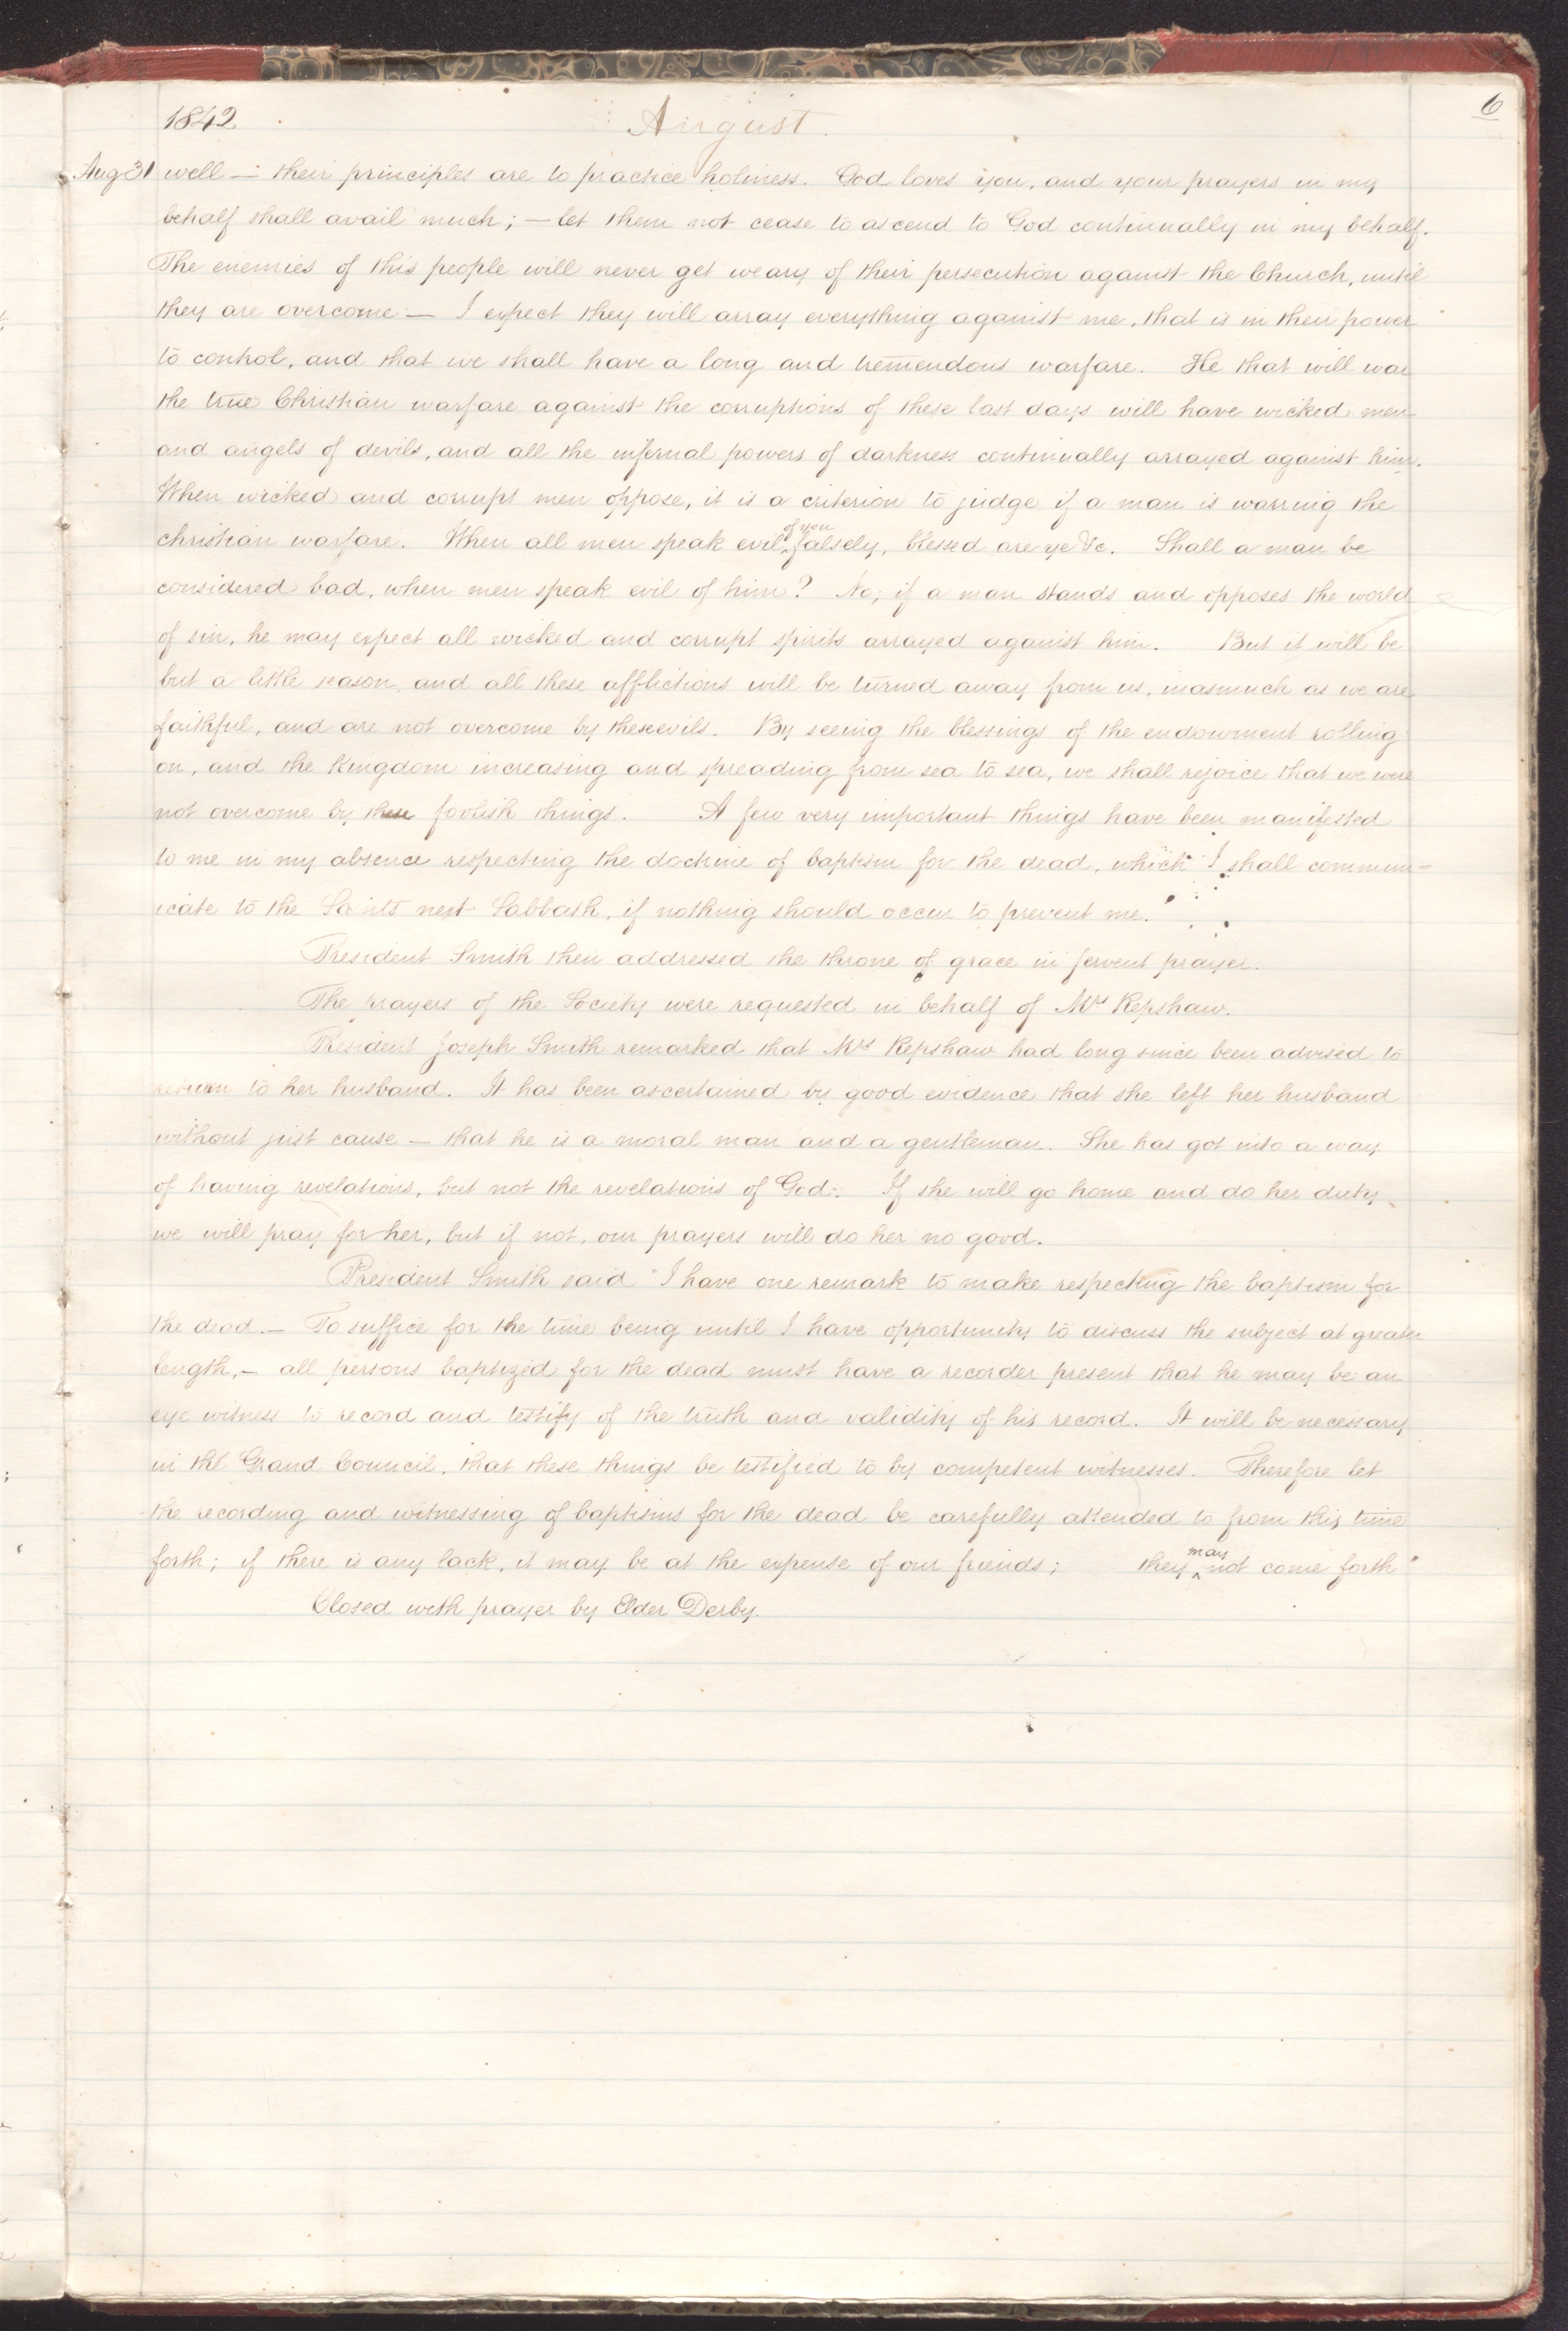 1842 August. 6
Aug 31 well — their principles are to practice holiness. God loves you, and your prayers in my
behalf shall avail much; — let them not cease to ascend to God continually in my behalf.
The enemies of this people will never get weary of their persecution against the Church, until
they are overcome — I expect they will array everything against me, that is in their power
to control, and that we shall have a long and tremendous warfare. He that will war
the true Christian warfare against the corruptions of these last days will have wicked men
and angels of devils, and all the infernal powers of darkness continually arrayed against him.
When wicked and corrupt men oppose, it is a criterion to judge if a man is warring the
christian warfare. When all men speak evil of you falsely, blessed are ye &c. Shall a man be
considered bad, when men speak evil of him? No; if a man stands and opposes the world
of sin, he may expect all wicked and corrupt spirits arrayed against him. But it will be
but a little season, and all these afflictions will be turned away from us, inasmuch as we are
faithful, and are not overcome by these evils. By seeing the blessings of the endowment rolling
on, and the Kingdom increasing and spreading from sea to sea, we shall rejoice that we were
not overcome by these foolish things. A few very important things have been manifested
to me in my absence respecting the doctrine of baptism for the dead, which I shall commun-
icate to the Saints next Sabbath, if nothing should occur to prevent me."
President Smith then addressed the throne of grace in fervent prayer.
The prayers of the Society were requested in behalf of Mrs Repshaw.
President Joseph Smith remarked that Mrs Repshaw had long since been advised to
return to her husband. It has been ascertained by good evidence that she left her husband
without just cause — that he is a moral man and a gentleman. She has got into a way
of having revelations, but not the revelations of God. If she will go home and do her duty
we will pray for her, but if not, our prayers will do her no good.
President Smith said "I have one remark to make respecting the baptism for
the dead. — To suffice for the time being until I have opportunity to discuss the subject at greater
length, — all persons baptized for the dead must have a recorder present that he may be an
eye witness to record and testify of the truth and validity of his record. It will be necessary
in the Grand Council, that these things be testified to by competent witnesses. Therefore let
the recording and witnessing of baptisms for the dead be carefully attended to from this time
forth; if there is any lack, it may be at the expense of our friends; they may not come forth"
Closed with prayer by Elder Derby.